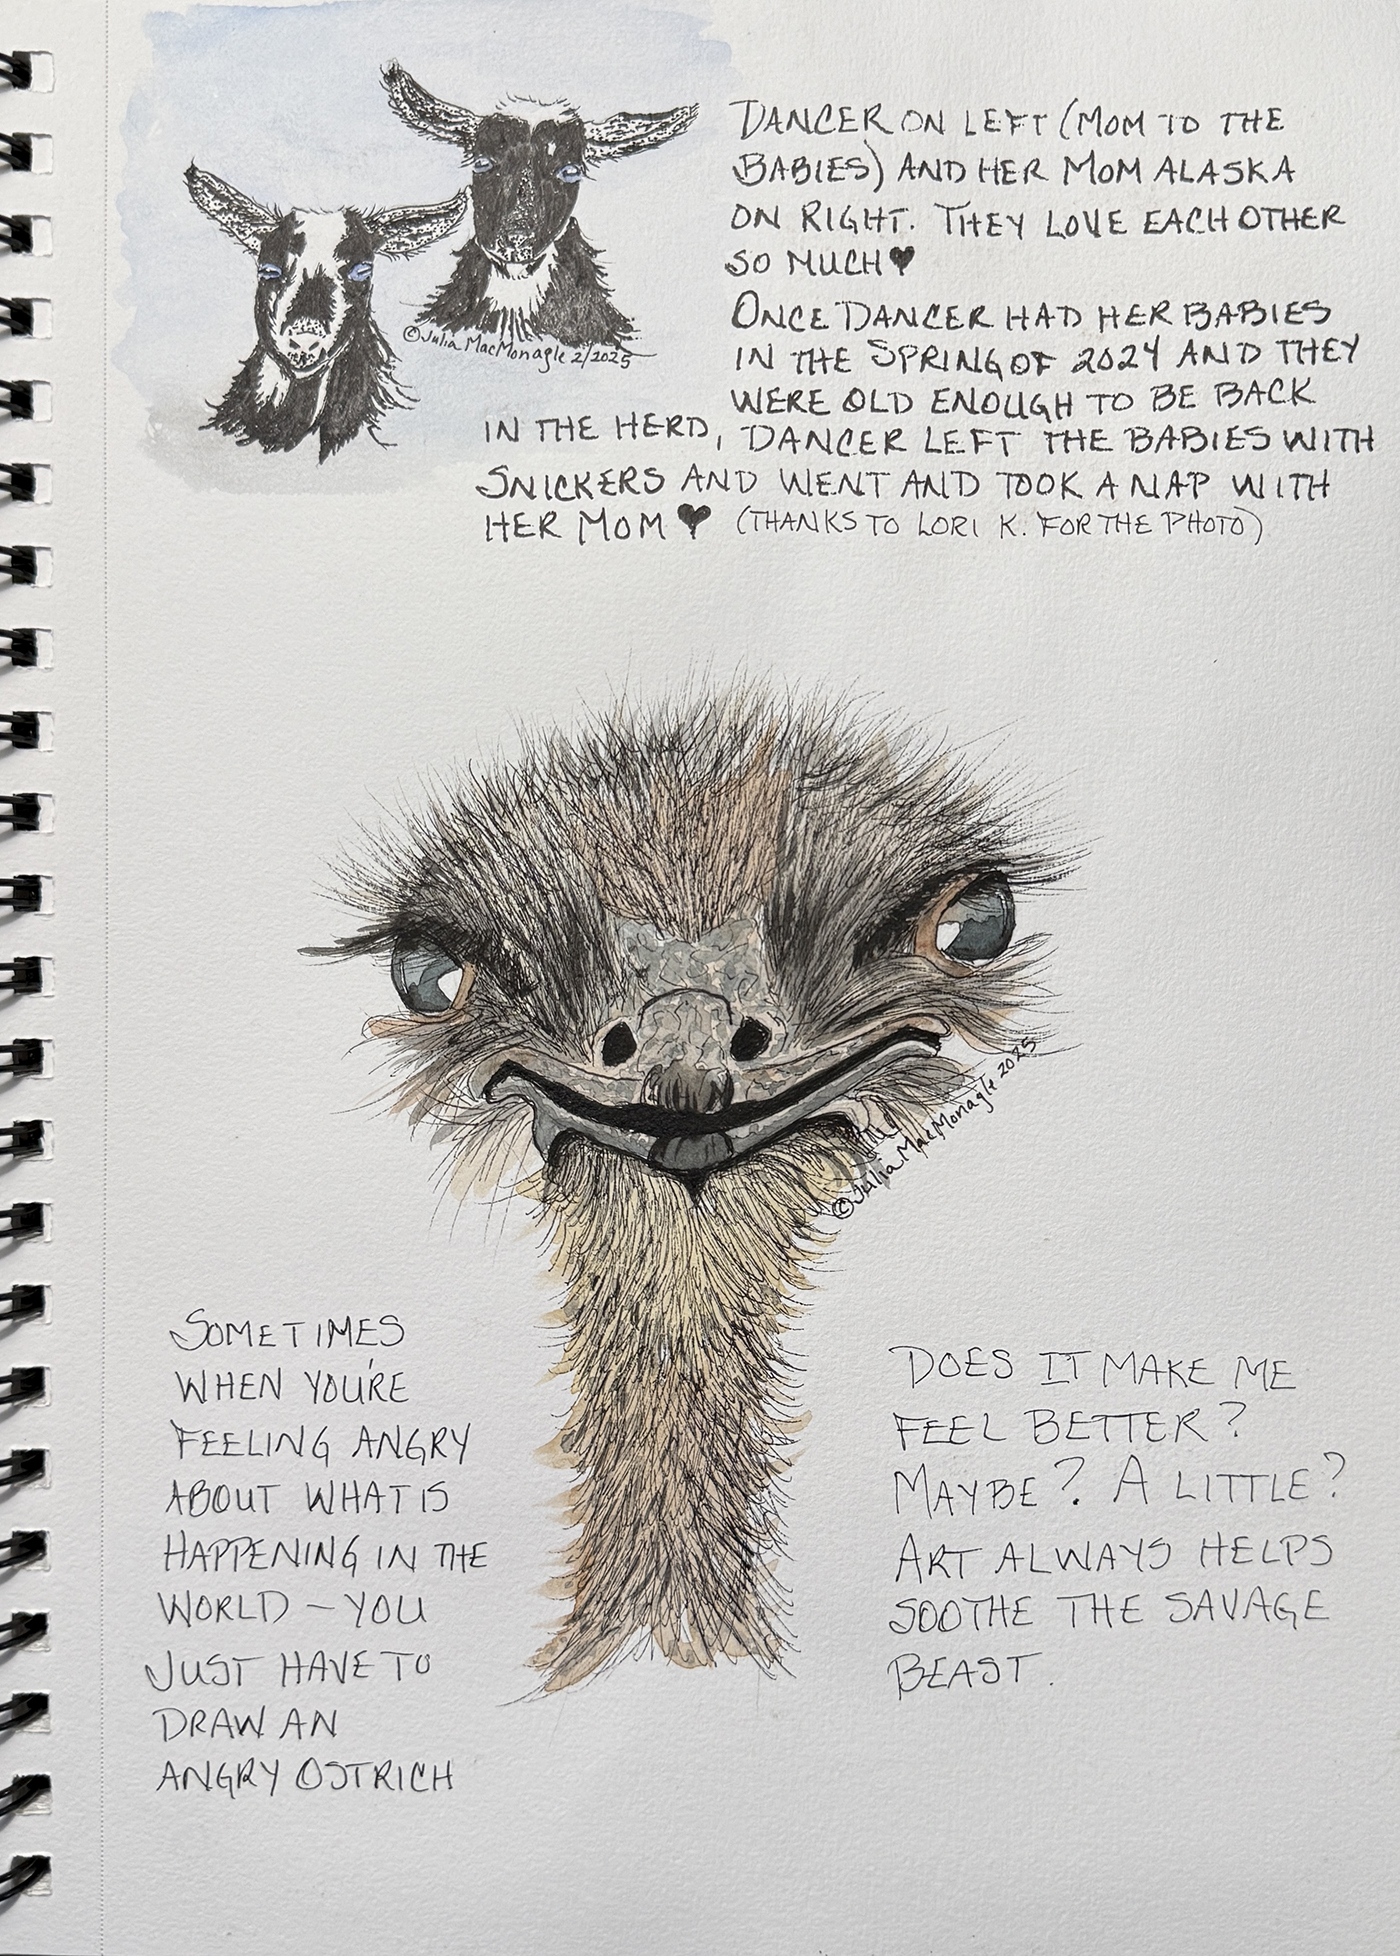 DANCER ON LEFT (MOM TO THE
BABIES) AND HER MOM ALASKA
ON RIGHT. THEY LOVE EACH OTHER
SO MUCH ♥
ONCE DANCER HAD HER BABIES
IN THE SPRING OF 2024 AND THEY
WERE OLD ENOUGH TO BE BACK
IN THE HERD, DANCER LEFT THE BABIES WITH
SNICKERS AND WENT AND TOOK A NAP WITH
HER MOM ♥ (THANKS TO LORI K. FOR THE PHOTO)
©Julia MacMonagle 2/2025
©Julia MacMonagle 2025
SOMETIMES
WHEN YOU'RE
FEELING ANGRY
ABOUT WHAT IS
HAPPENING IN THE
WORLD – YOU
JUST HAVE TO
DRAW AN
ANGRY OSTRICH
DOES IT MAKE ME
FEEL BETTER?
MAYBE? A LITTLE?
ART ALWAYS HELPS
SOOTHE THE SAVAGE
BEAST.